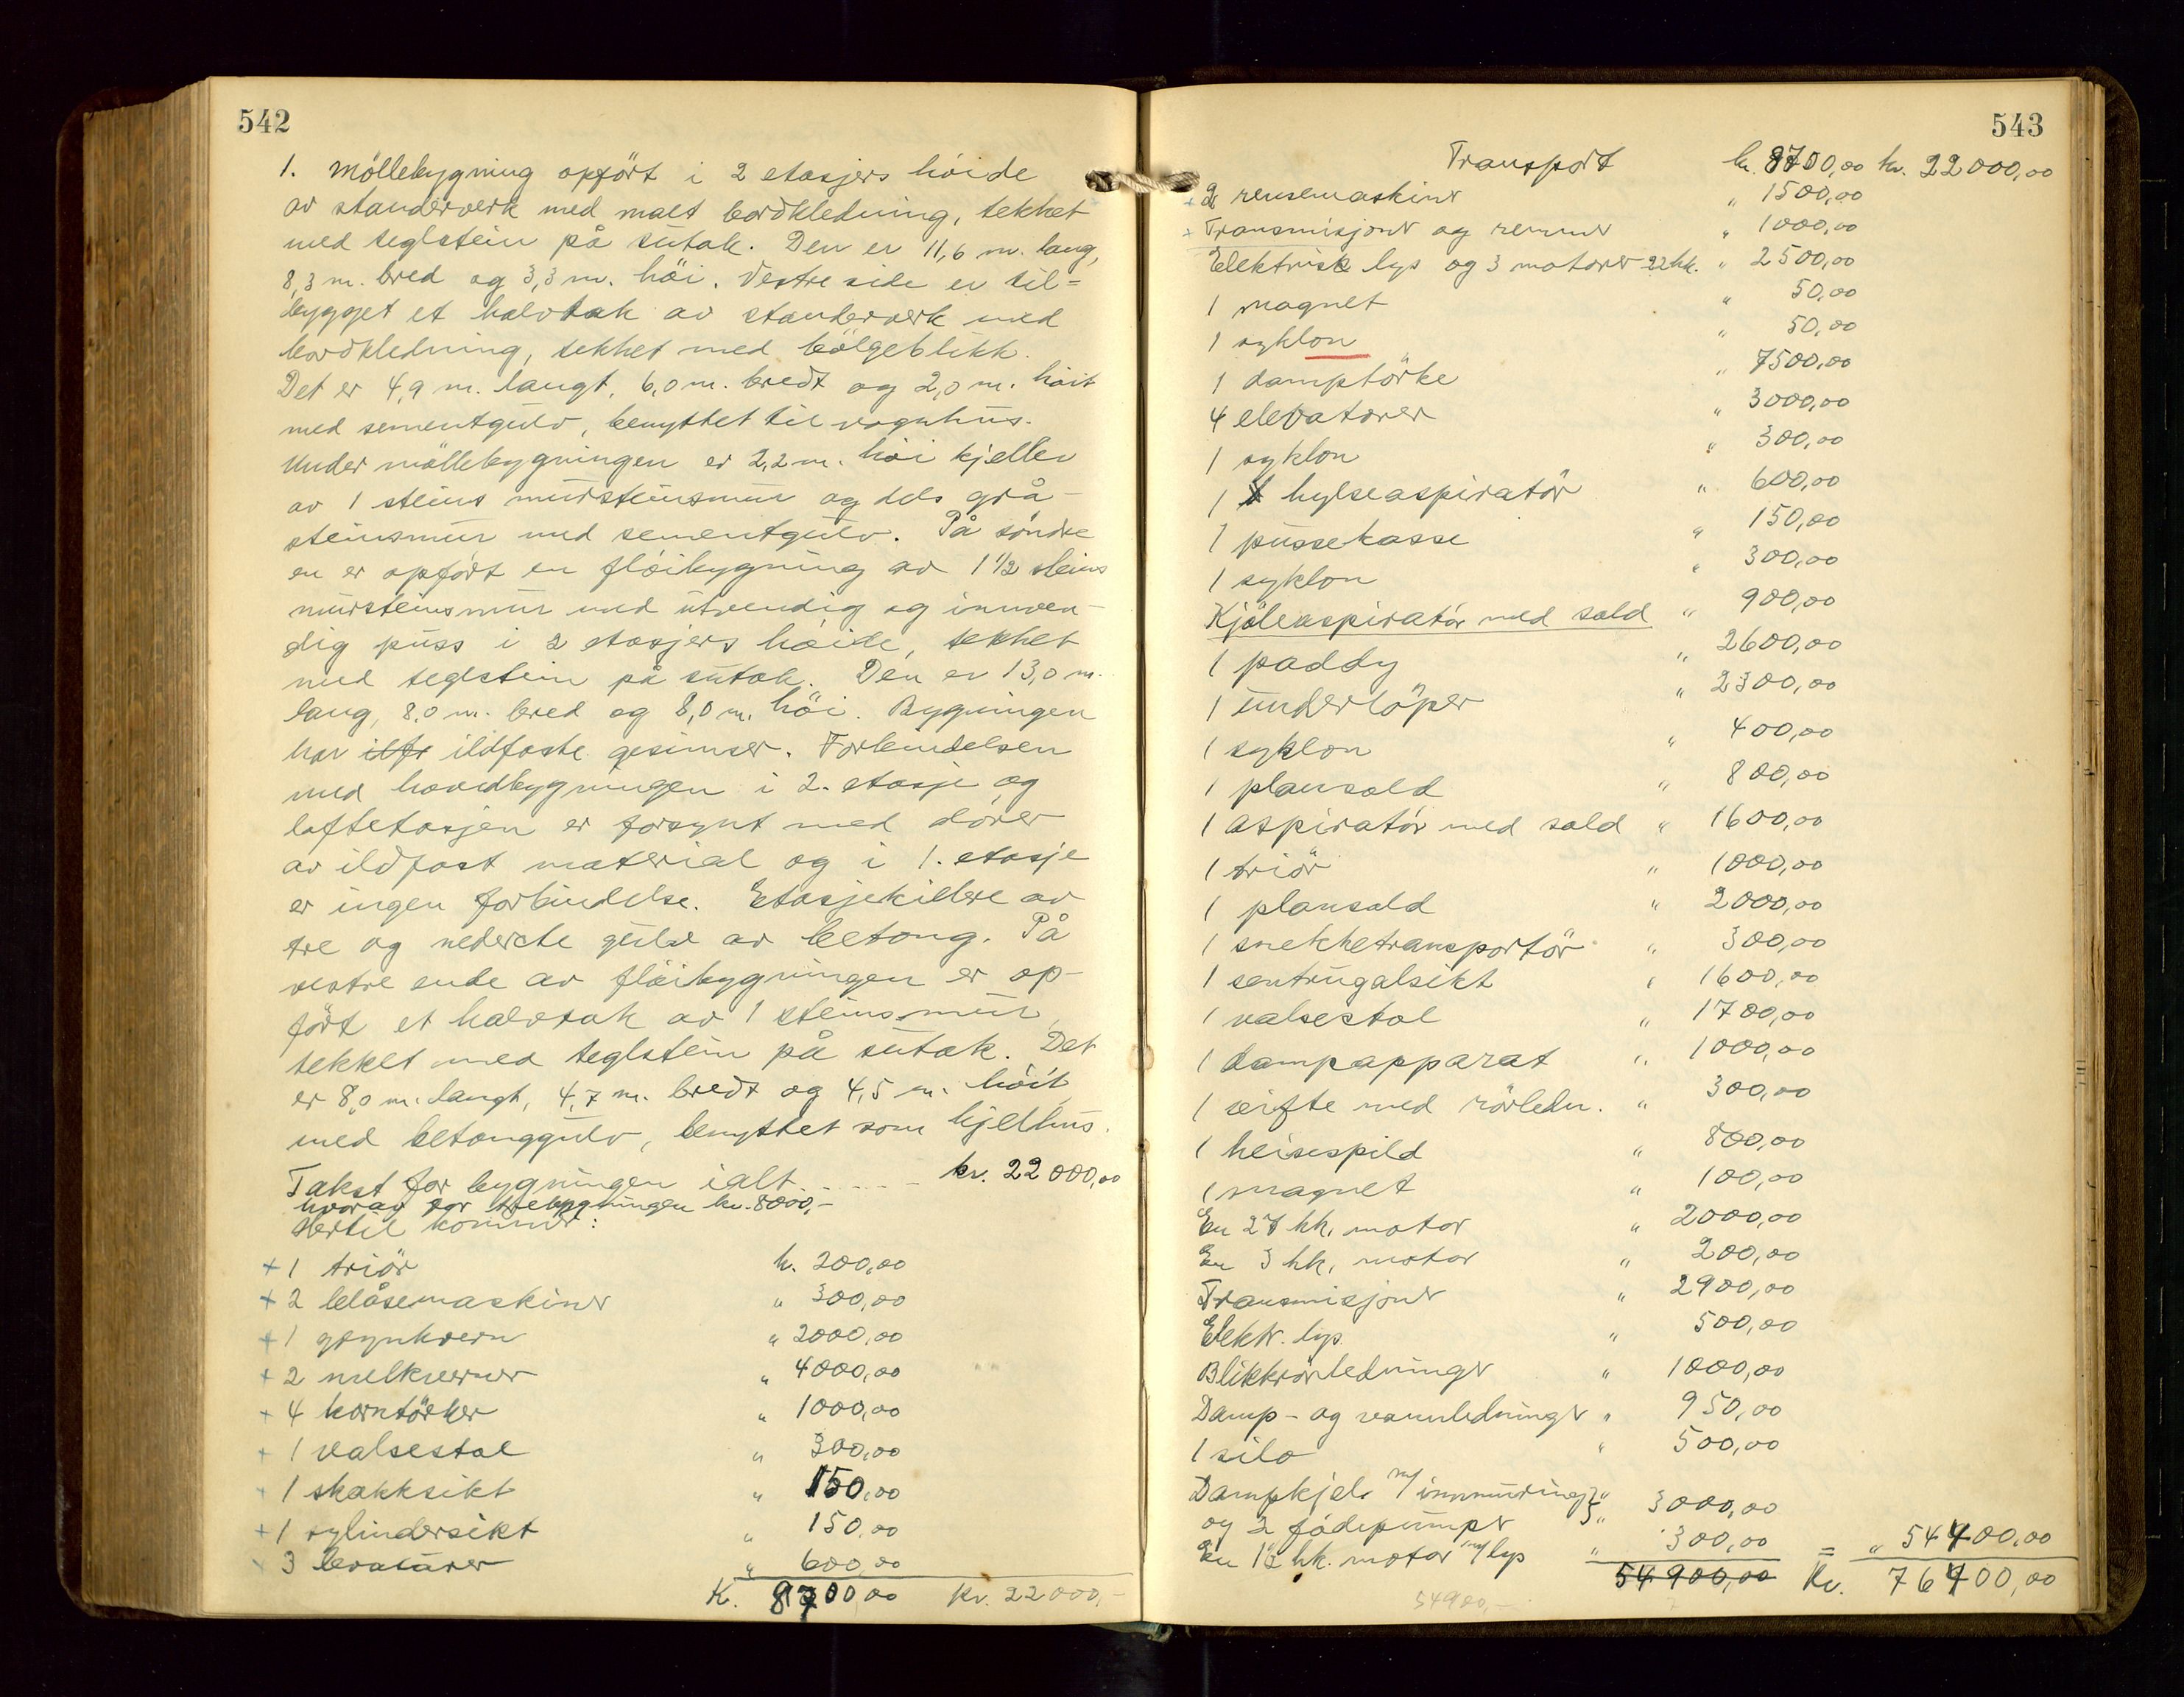 542
1. Möllebygning opfört i 2 etasjers höide
av standerverk med malt bordkledning, tekket
med teglstein på sutak. Den er 11,6 m. lang,
8,3 m. bred og 3,3 m. höi. Vestre side er til=
bygget et halvtak av standerverk med
bordkledning, tekket med bölgeblikk.
Det er 4,9 m. langt, 6,0 m. bredt og 2,0 m. höit
med sementgulv, benyttet til vognhus.
Under möllebygningen er 2,2 m. höi kjeller
av 1 steins mursteinsmur og dels grå-
steinsmur med sementgulv. På söndre
en er opfört en flöibygning av 1 1/2 steins
mursteinsmur med utvendig og innven-
dig puss i 2 etasjers höide, tekket
med teglstein på sutak. Den er 13,0 m.
lang, 8,0 m. bred og 8,0 m. höi. Bygningen
har ildfa ildfaste gesimser. Forbindelsen
med hovedbygningen i 2. etasje og
loftetasjen er forsynt med dörer
av ildfast material og i 1. etasje
er ingen forbindelse. Etasjekillere av
tre og nederste gulv av betong. På
vestre ende av flöibygningen er op-
fört et halvtak av 1 steins mur,
tekket med teglstein på sutak. Det
er 8,0 m. langt, 4,7 m. bredt og 4,5 m. höit
med betonggulv, benyttet som kjelhus.
Takst for bygningen ialt ..... kr. 22 000,00
hvorav for trebygningen kr. 8000,-
Hertil kommer:
+ 1 triör kr. 200,00
+ 2 blåsemaskiner " 300,00
+ 1 grynkvern " 2000,00
+ 2 melkverner " 4000,00
+ 4 korntörker " 1000,00
+ 1 valsestol " 300,00
+ 1 skakksikt " 150,00
+ 1 sylindersikt " 150,00
3 levatörer " 600,00
K. 8700,00 kr. 22 000,-
543
Transport kr. 8700,00 kr. 22 000,00
+ 2 rensemaskiner " 1500,00
+ Transmisjoner og remmer " 1000,00
Elektrisk lys og 3 motorer 22 hk. " 2500,00
1 magnet " 50,00
1 syklon " 50,00
1 damptörke " 7500,00
4 elevatorer " 3000,00
1 syklon " 300,00
1 hylseaspiratör " 600,00
1 pussekasse " 150,00
1 syklon " 300,00
Kjöleaspiratör med sold " 900,00
1 paddy " 2600,00
1 underlöper " 2300,00
1 syklon " 400,00
1 plansold " 800,00
1 aspiratör med sold " 1600,00
1 triör " 1000,00
1 plansold " 2000,00
1 snekketransportör " 300,00
1 sentrugalsikt " 1600,00
1 valsestol " 1700,00
1 dampapparat " 1000,00
1 vifte med rörledn. " 300,00
1 heisespild " 800,00
1 magnet " 100,00
En 27 hk. motor " 2000,00
En 3 hk. motor " 200,00
Transmisjoner " 2900,00
Elektr. lys " 500,00
Blikkrörledninger " 1000,00
Damp- og vannledninger " 950,00
1 silo " 500,00
Dampkjel m/ innmuring
og 2 födepumper " 3000,00
En 12 hk. motor m/ lys " 300,00 = " 54 400,00
54 900,00 Kr. 76 400,00
54900,-